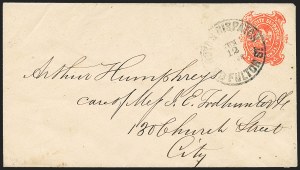 DISPATCH
FULTON ST
Arthur Humphrey
care of Mess J. E. Fodhunter & Co
130 Church Street
City